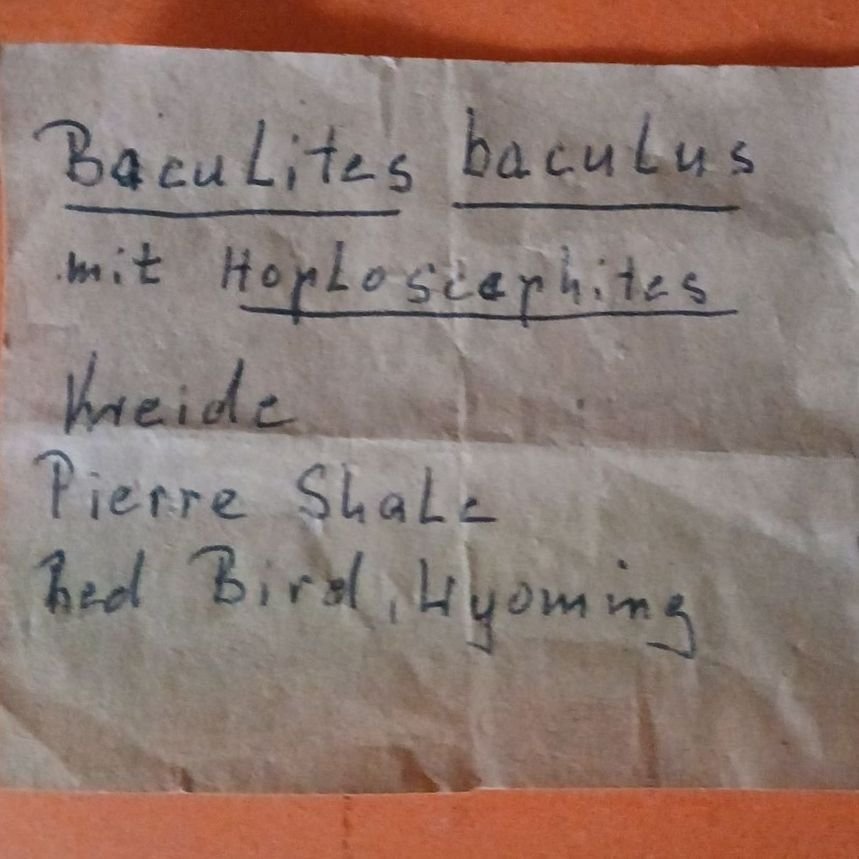 Baculites baculus
mit Hoploscaphites
Kreide
Pierre Shale
Red Bird, Wyoming